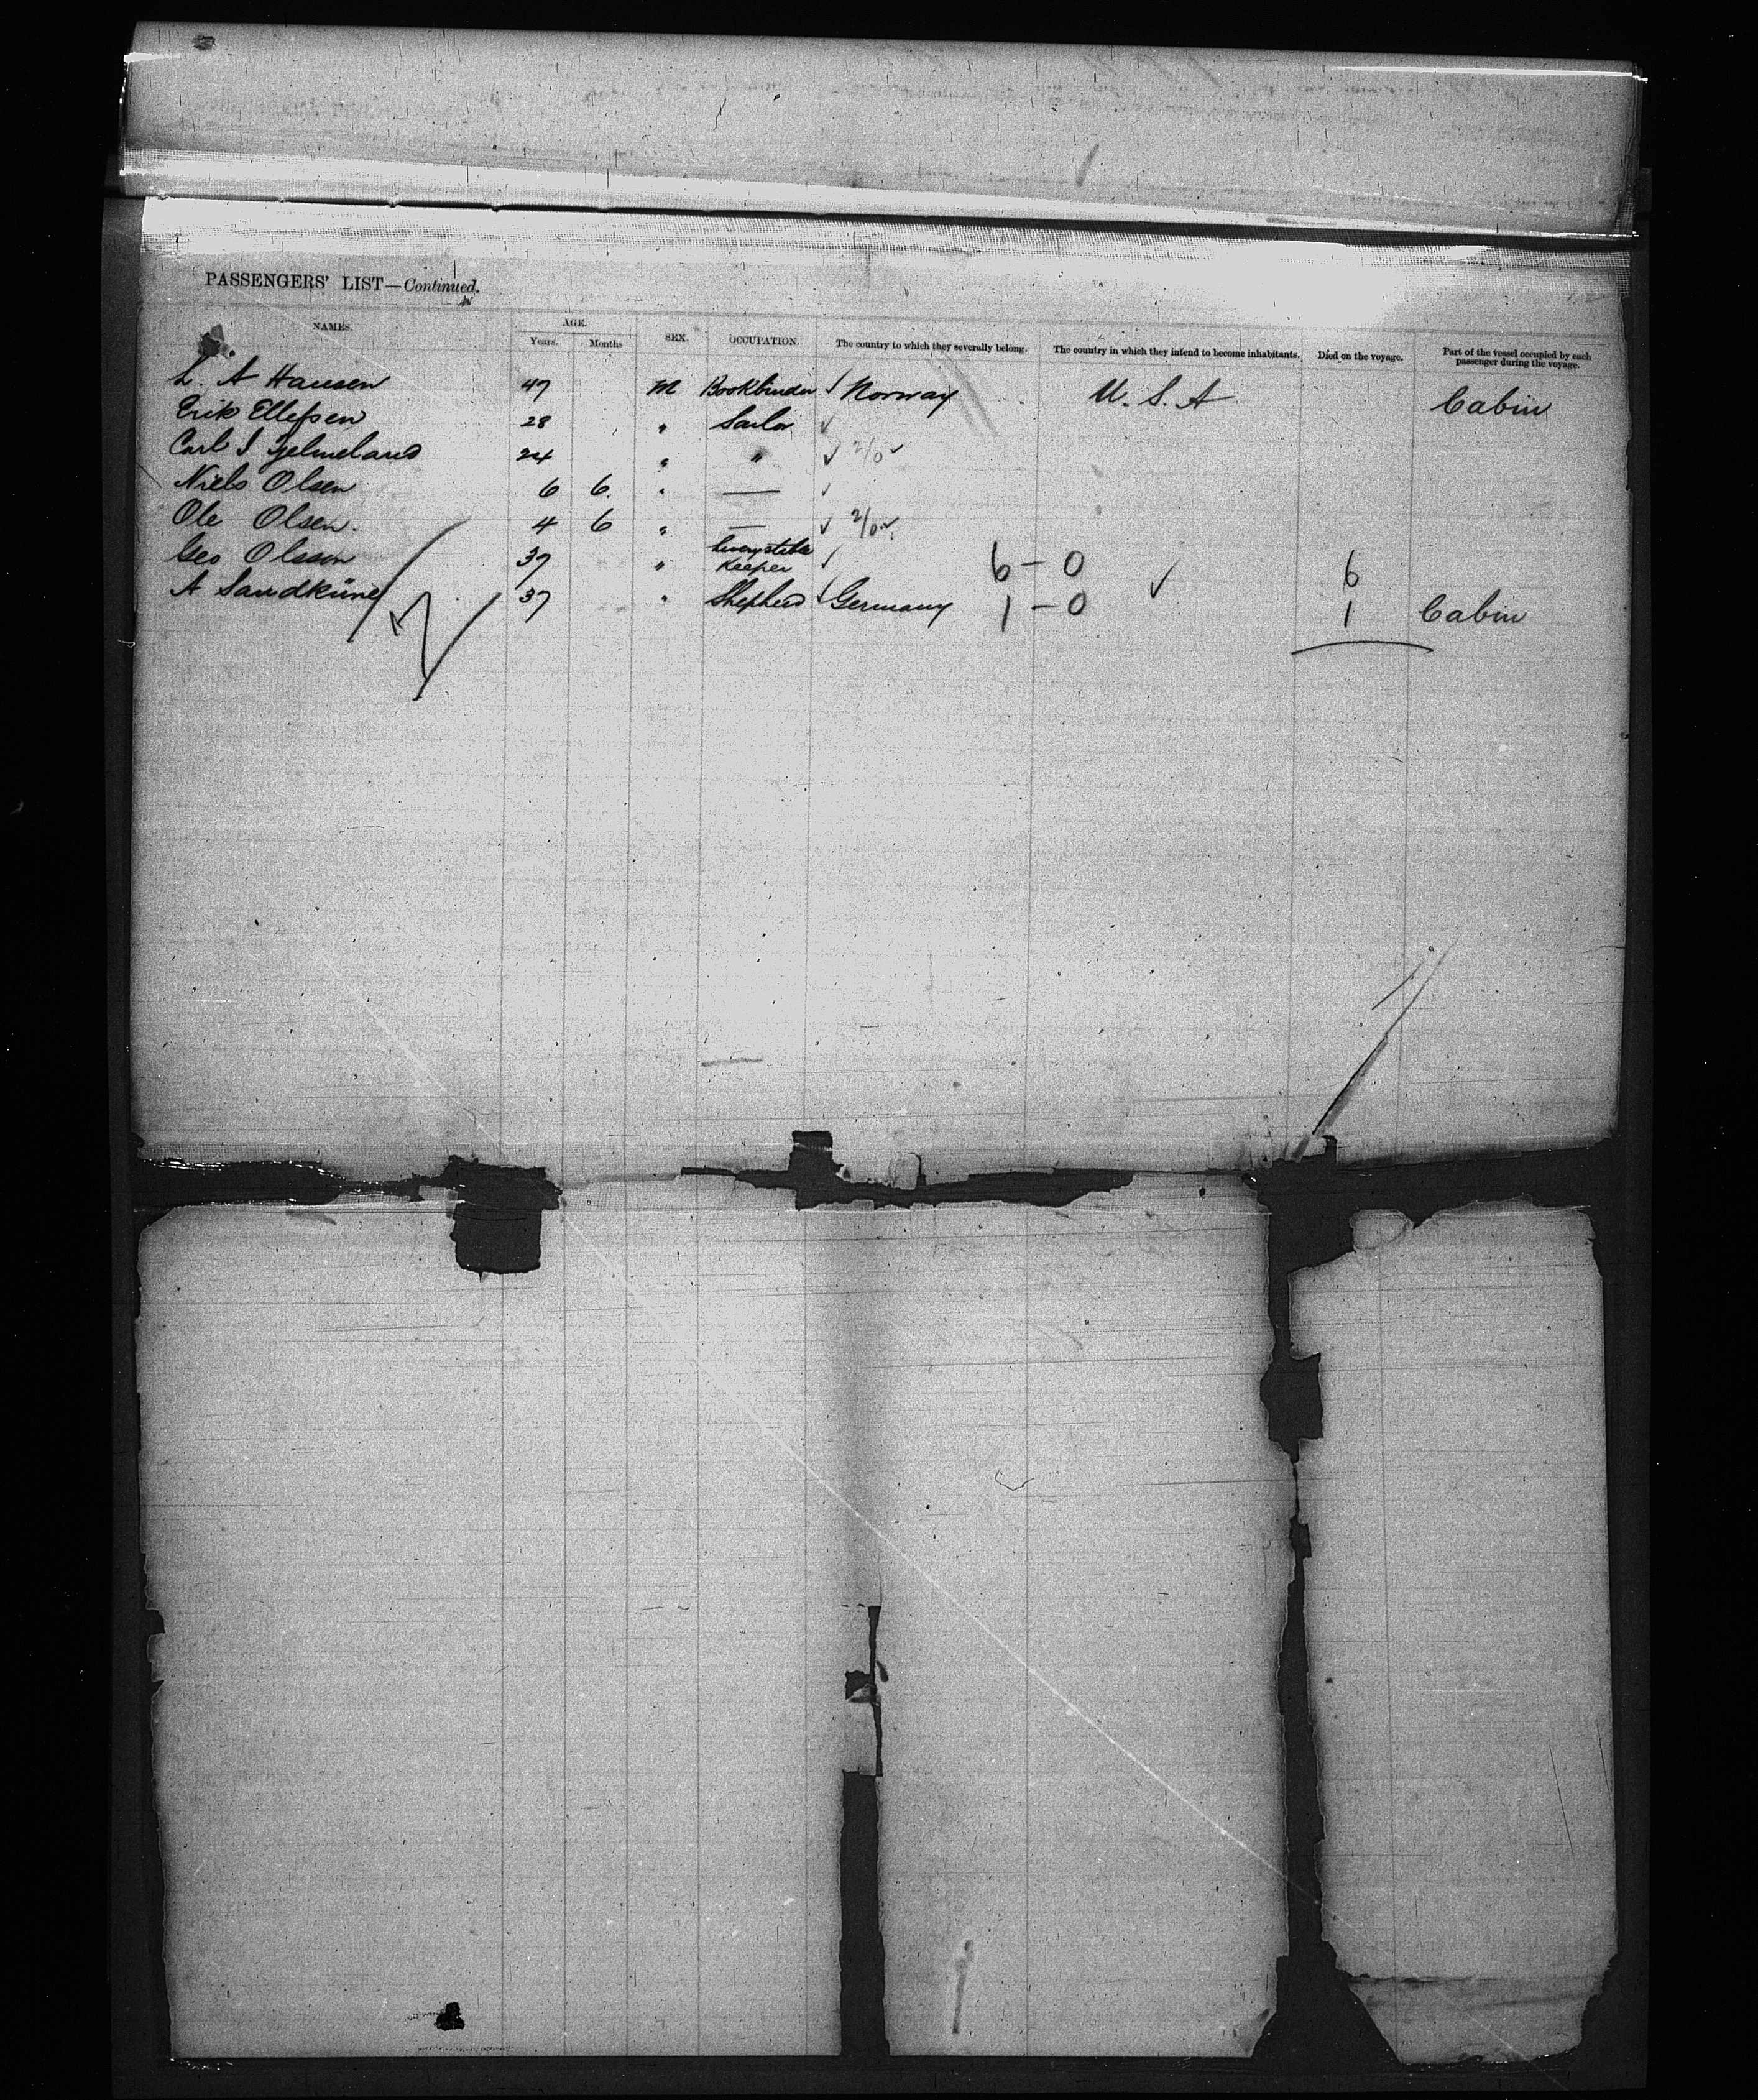 PASSENGERS' LIST—Continued.
NAMES. AGE. SEX. OCCUPATION. The country to which they severally belong. The country in which they intend to become inhabitants. Died on the voyage. Part of the vessel occupied by each passenger during the voyage.
Years. Months
L. A Hansen 47 M Bookbinder ✓ Norway U. S. A Cabin
Erik Ellefsen 28 " Sailor ✓
Carl I Fjelmeland 24 " " ✓ 2/0 ✓
Niels Olsen 6 6. " — ✓
Ole Olsen. 4 6 " — ✓ 2/0 ✓
Geo Olsson 37 " Liverystable Keeper ✓ 6 - 0 6
A Sandküne 37 " Shepherd ✓ Germany 1 - 0 ✓ 1 Cabin